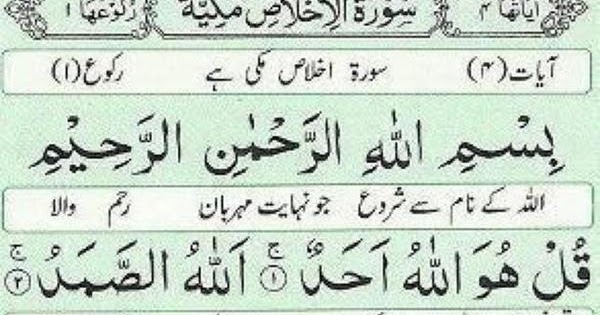 اٰیاتها ۴ سُوْرَةُ الْاِخْلَاصِ مَكِّيَّةٌ رُكُوْعُهَا ۱
آیات(۴) سورۃ اخلاص مکی ہے رکوع(۱)
بِسْمِ اللّٰهِ الرَّحْمٰنِ الرَّحِيْمِ
اللہ کے نام سے شروع جو نہایت مہربان رحم والا
قُلْ هُوَ اللّٰهُ اَحَدٌ ۚ‏﴿۱﴾ اَللّٰهُ الصَّمَدُ ۚ‏﴿۲﴾